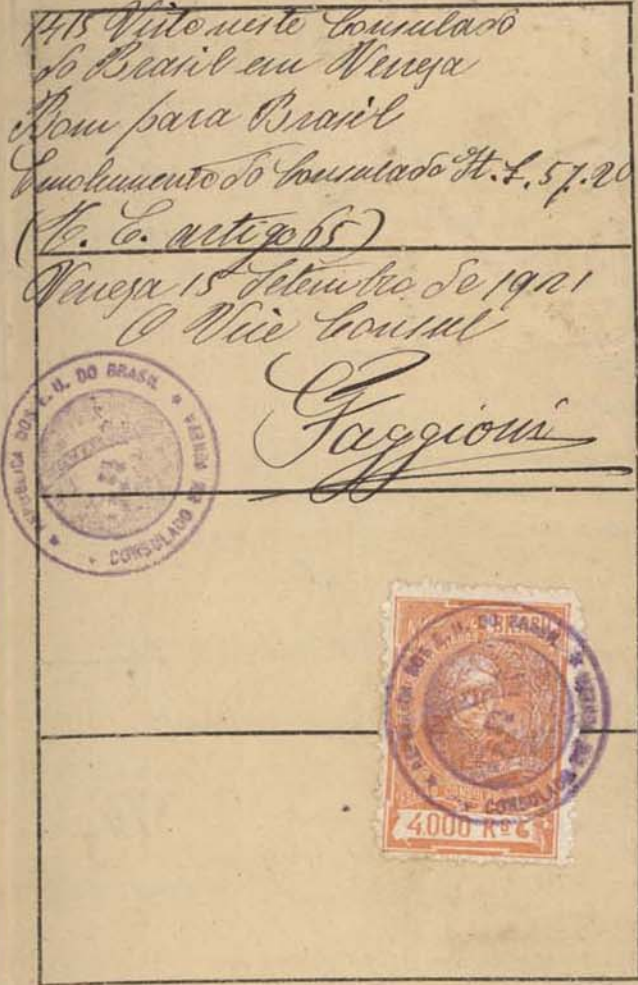 1415 Visto neste Consulado
do Brasil em Veneza
Bom para Brasil
Emolumento do Consulado It. £. 57.20
(T. C. artigo 65)
Veneza 15 Setembro de 1921
O Vice Consul
Faggioni
REPUBLICA DOS E. U. DO BRASIL * CONSULADO EM VENEZA *
REPUBLICA DOS E. U. DO BRASIL * CONSULADO EM VENEZA *
4.000 Rs